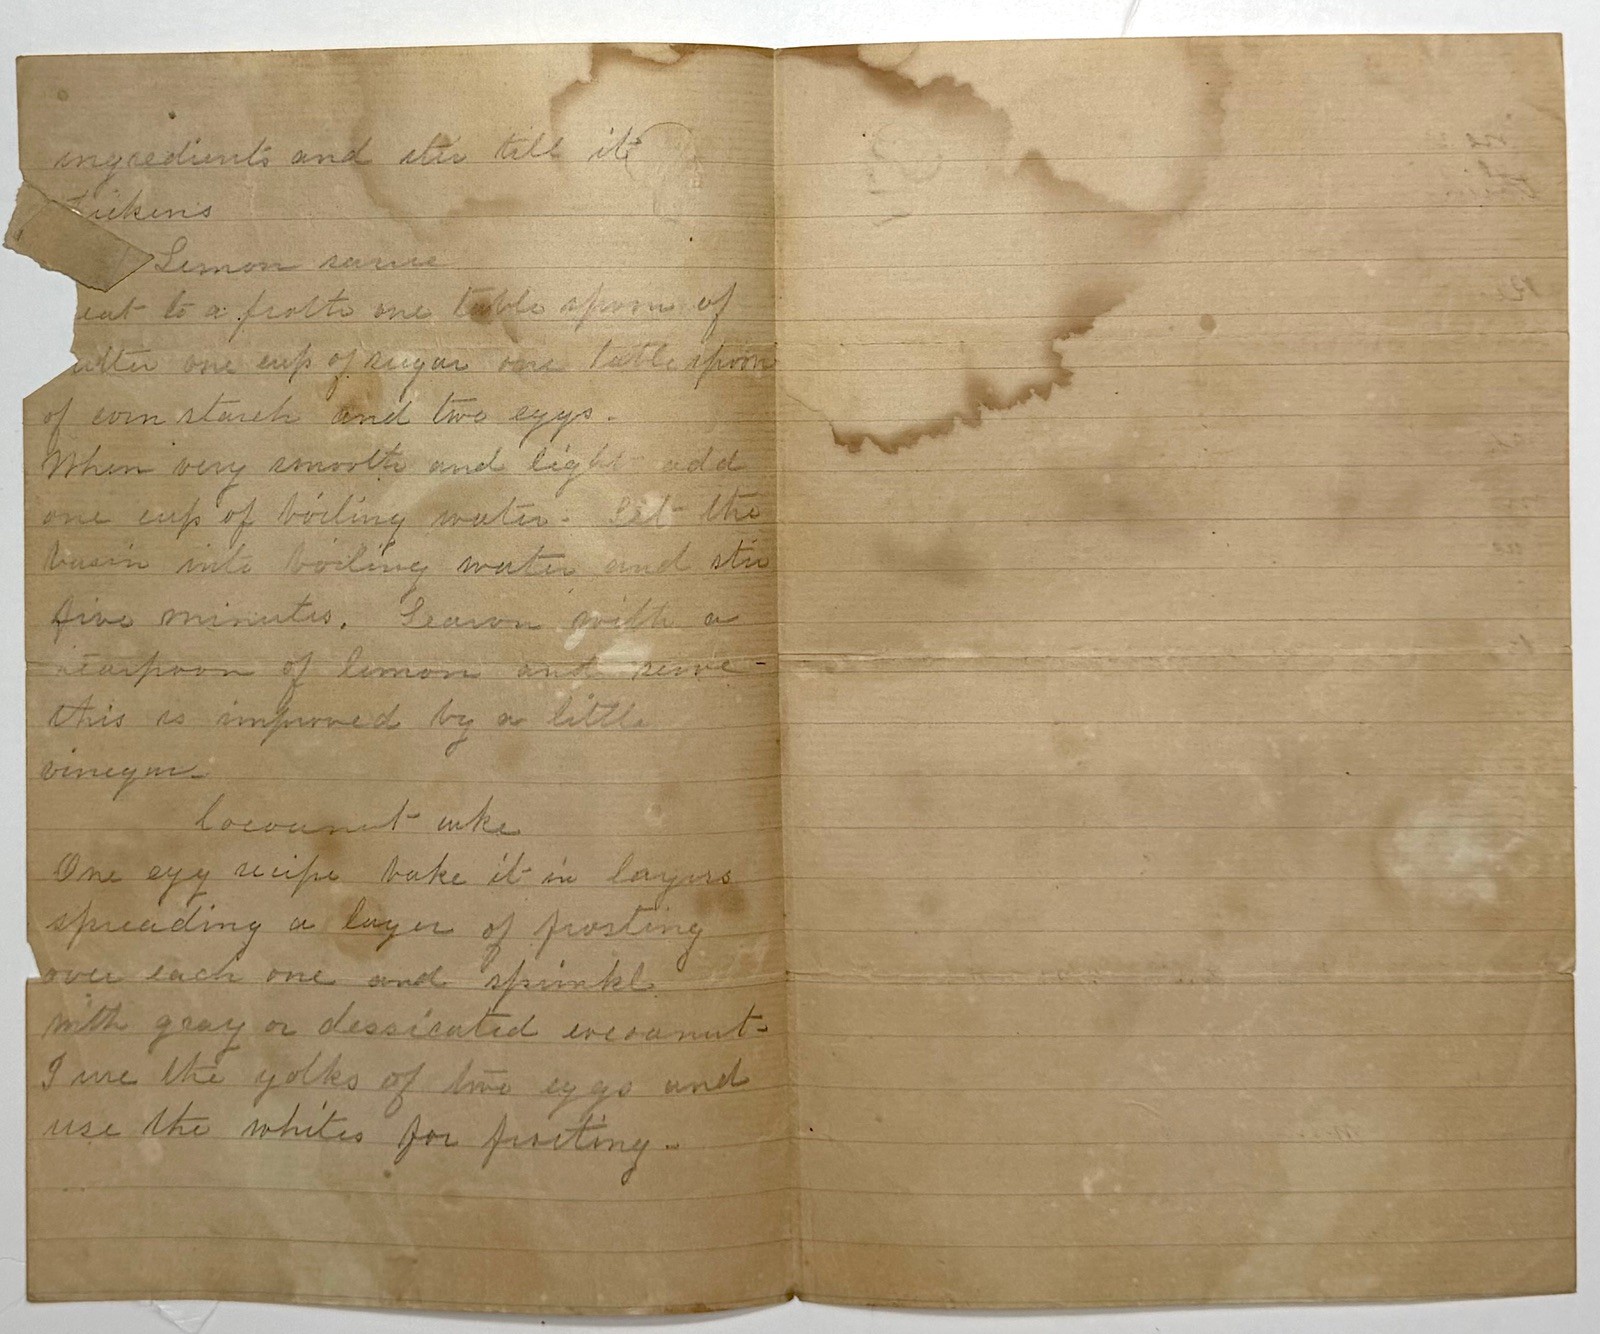 ingredients and stir till it
tickens
Lemon sauce
eat to a froth one table spoon of
utter one cup of sugar one table spoon
of corn starch and two eggs.
When very smooth and light add
one cup of boiling water. Set the
basin into boiling water and stir
five minutes. Season with a
teaspoon of lemon and serve-
this is improved by a little
vinegar-
Cocoanut cake
One egg recipe bake it in layers
spreading a layer of frosting
over each one and sprinkl
with gray or dessicated cocoanut-
I use the yolks of two eggs and
use the whites for frosting-